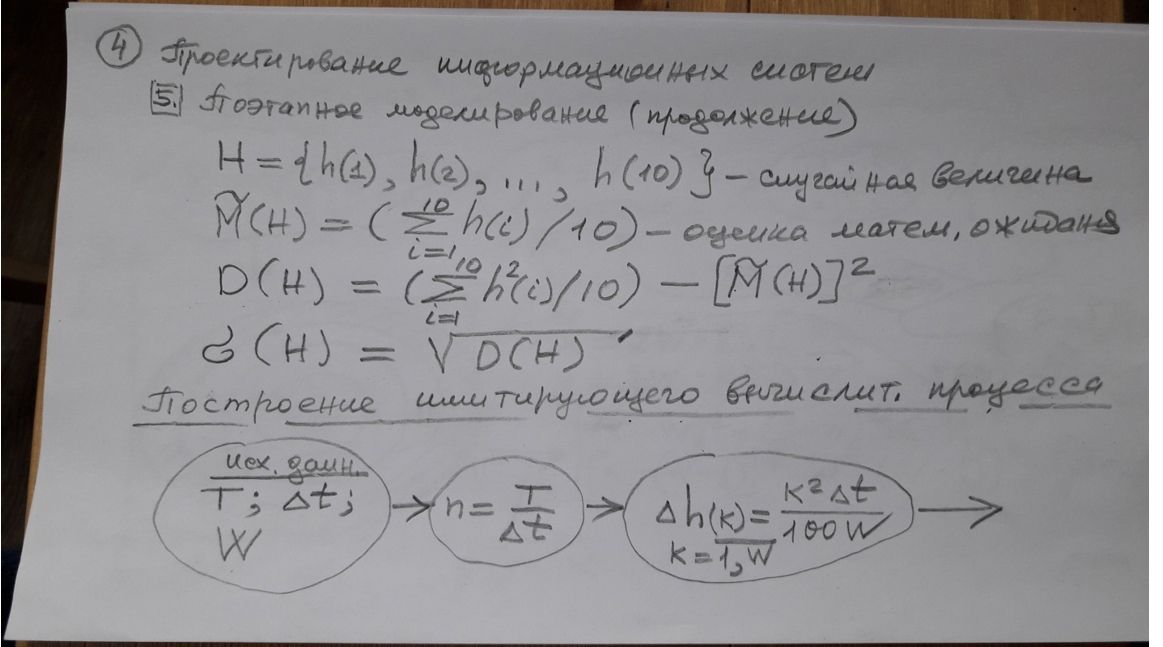 ④ Проектирование информационных систем
5. Поэтапное моделирование (продолжение)
H = {h(1), h(2), ..., h(10)} – случайная величина
M̃(H) = (∑_{i=1}^{10} h(i)/10) – оценка матем, ожидания
D(H) = (∑_{i=1}^{10} h²(i)/10) – [M̃(H)]²
σ(H) = √D(H)
Построение имитирующего вычислит. процесса
исх. данн. T; Δt; W → n = T/Δt → Δh(k) = k²Δt/100W k = 1, W →